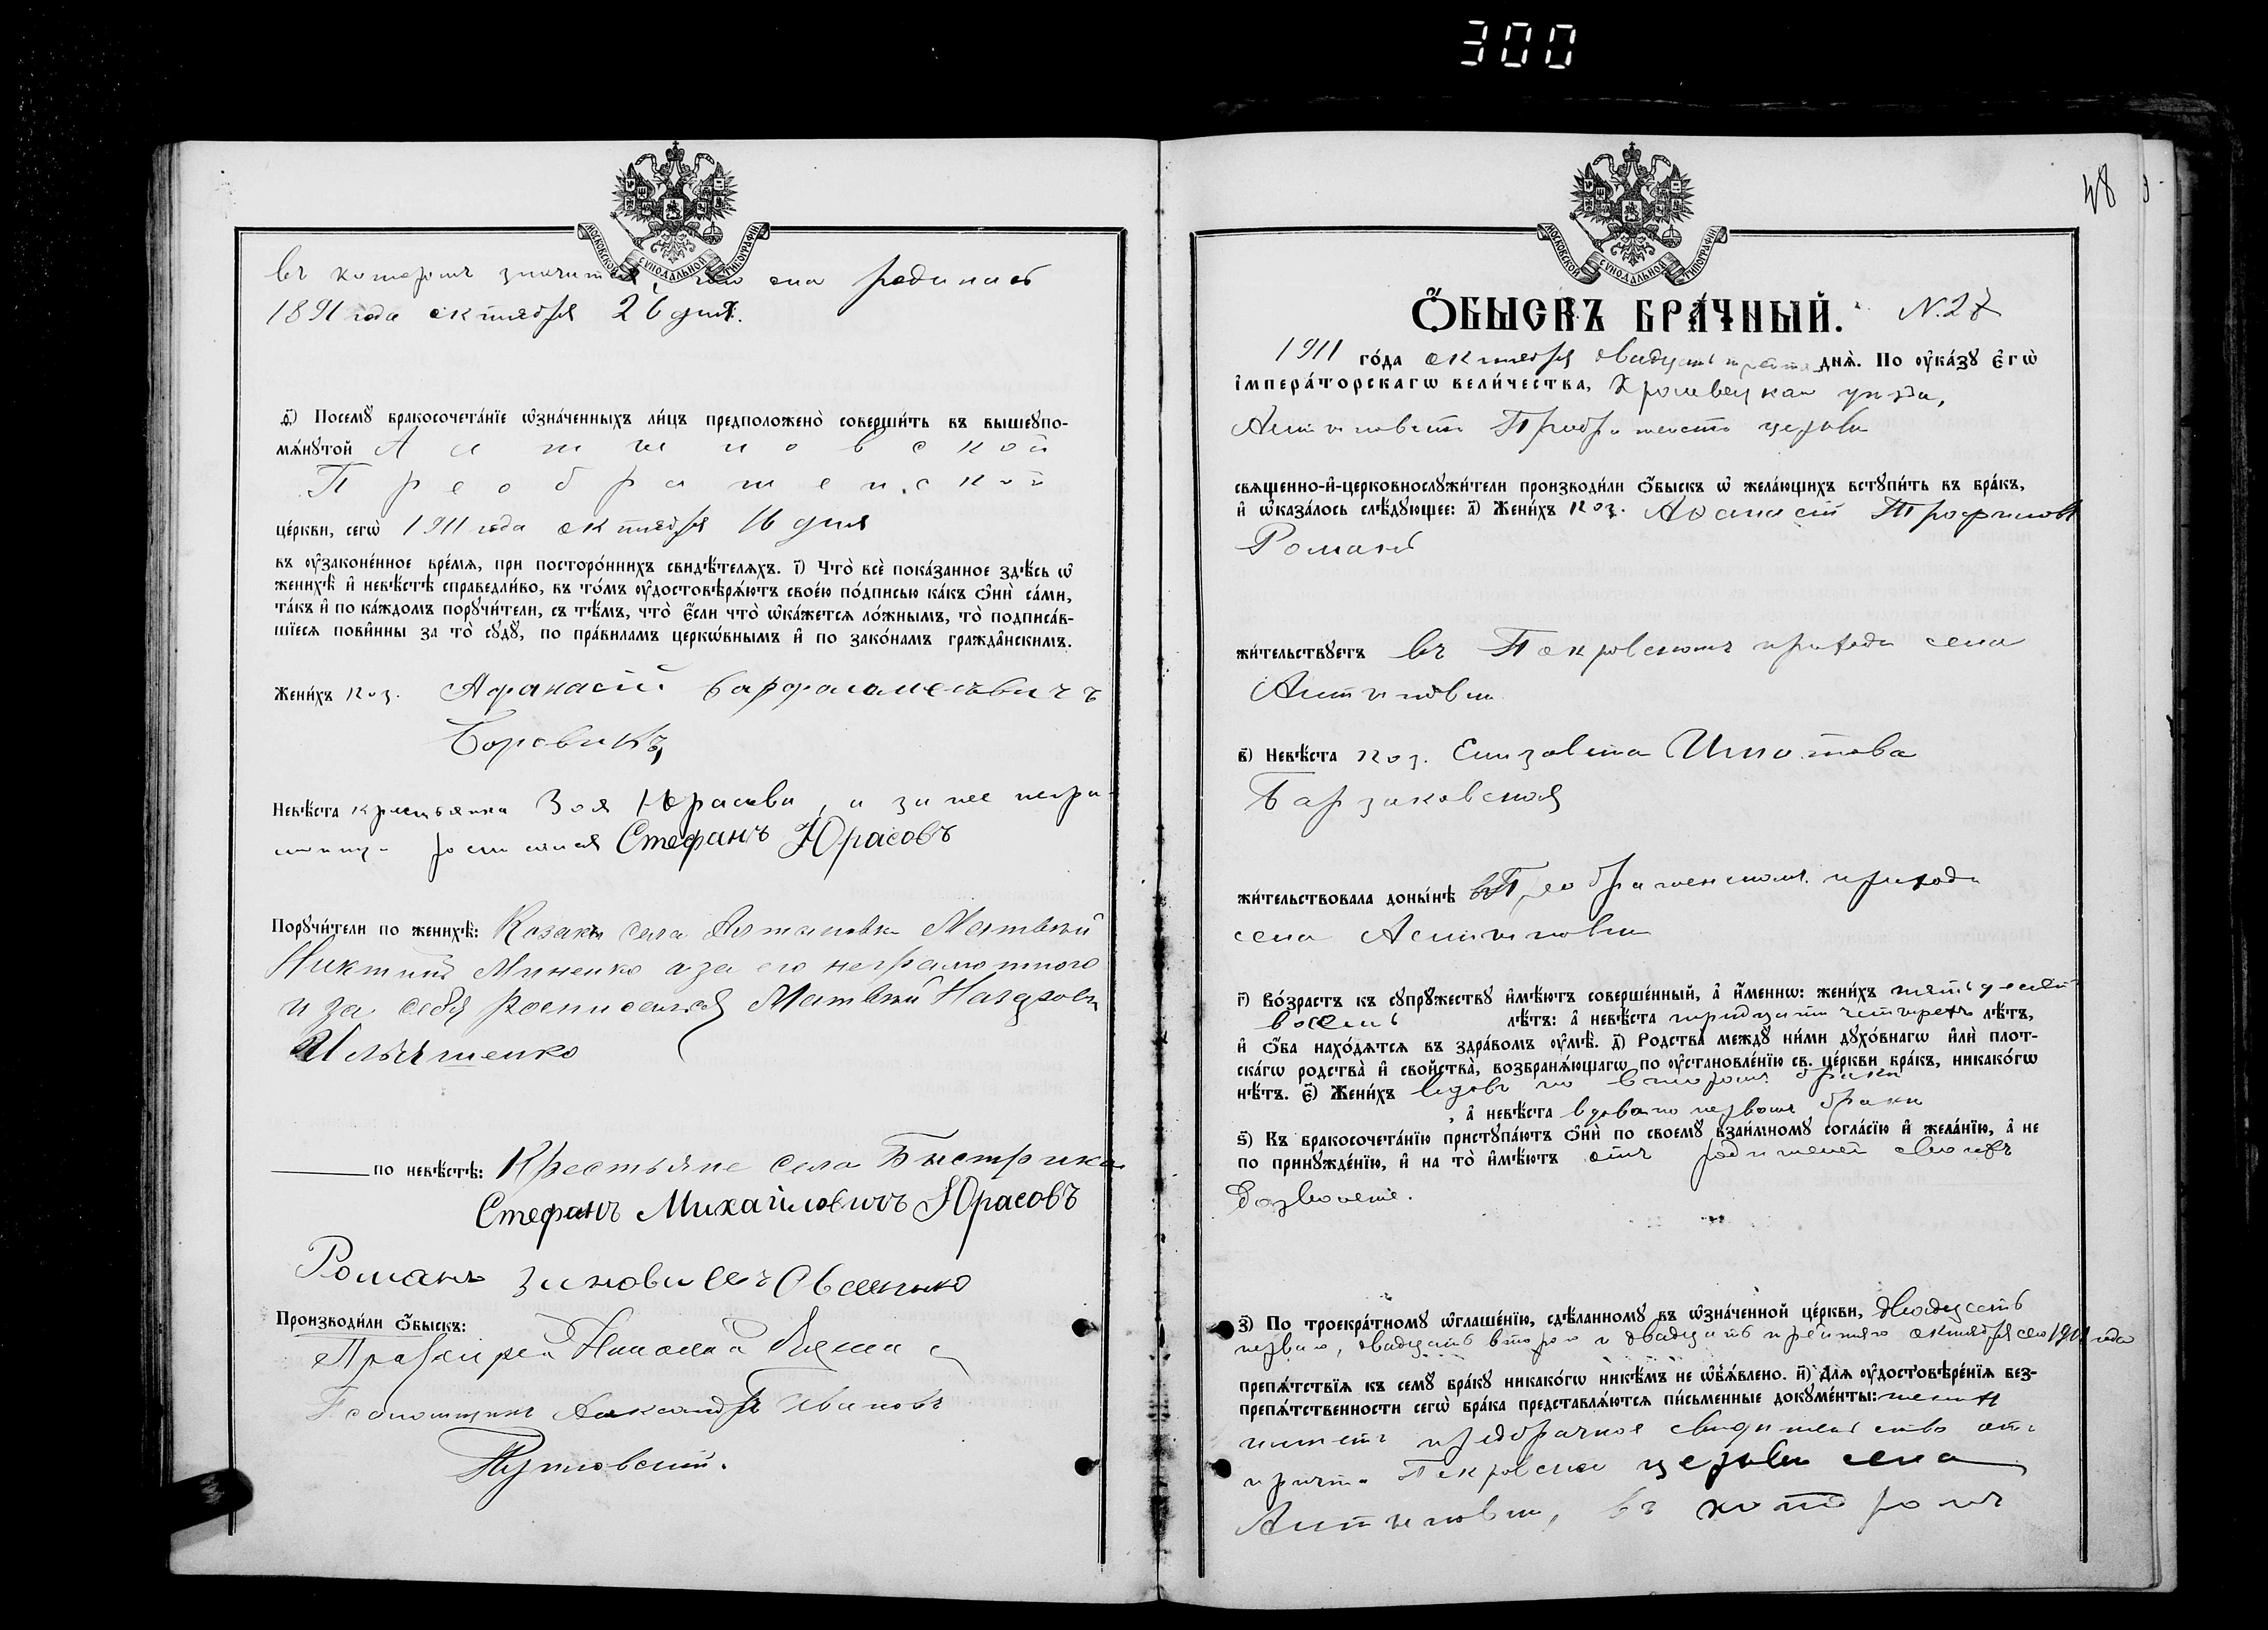 300
МОСКОВСКОЙ СУНОДАЛЬНОЙ ТИПОГРАФІИ
въ которомъ значится, что она родилась
1891 года октября 26 дня.
д҃і) Посемꙋ бракосочета́нїе ѡ҆зна́ченныхъ ли́цъ предположено̀ соверши́ть въ вышеꙋпо-
мѧ́нꙋтой
Преображенской
це́ркви, сегѡ̀ 1911 года октября 16 дня
въ ᲂу҆законе́нное вре́мѧ, при посторо́ннихъ свидѣ́телѧхъ. і҃) Что̀ всѐ пока́занное здѣ́сь ѡ҆
женихѣ̀ и҆ невѣ́стѣ справедли́во, въ то́мъ ᲂу҆достовѣрѧ́ютъ свое́ю по́дписью ка́къ ѻ҆нѝ са́ми,
та́къ и҆ по ка́ждомъ порꙋчи́тели, съ тѣ́мъ, что̀ є҆́сли что̀ ѡ҆ка́жетсѧ ло́жнымъ, то̀ подписа́в-
шїесѧ пови́нны за то̀ сꙋдꙋ̀, по пра́виламъ церкѡ́внымъ и҆ по зако́намъ гражда́нскимъ.
Жени́хъ коз. Афанасій Варфоломеевичъ
Боровикъ,
Невѣ́ста крестьянка Зоя Юрасова, а за нее негра-
росписался Стефанъ Юрасовъ
Порꙋчи́тели по женихѣ̀: Козаки села Матвѣй
Миненко а за его неграмотного
и за себя росписался Матвѣй Назаровъ
Ильяшенко
по невѣ́стѣ: Крестьяне села Быстрика
Стефанъ Михайловичъ Юрасовъ
Романъ Зиновиевъ Овсеенко
Производи́ли ѻ҆́быскъ:
Николай
Псаломщикъ Александръ Ивановъ
48
МОСКОВСКОЙ СУНОДАЛЬНОЙ ТИПОГРАФІИ
Ѻ҆́БЫСКЪ БРА́ЧНЫЙ. N. 27
1911 го́да октября двадцать третьяго днѧ̀. По ᲂу҆ка́зꙋ є҆гѡ̀
і҆мпера́торскагѡ вели́чества, Кролевецкаго уѣзда,
церкви
свѧщенно-и҆-церковнослꙋжи́тели производи́ли ѻ҆́быскъ ѡ҆ жела́ющихъ встꙋпи́ть въ бра́къ,
и҆ ѡ҆каза́лось слѣ́дꙋющее: а҃) Жени́хъ коз. Аѳанасій Трофимовъ
Романъ
жи́тельствꙋетъ въ Покровскомъ приходѣ села
в҃) Невѣ́ста коз. Елизавета Ипатова
Барзаковская
жи́тельствовала доны́нѣ въ Преображенскомъ приходѣ
села
г҃) Во́зрастъ къ сꙋпрꙋ́жествꙋ и҆мѣ́ютъ соверше́нный, а҆ и҆́меннѡ: жени́хъ пятьдесятъ
восемь лѣ́тъ: а҆ невѣ́ста тридцати четырехъ лѣ́тъ,
и҆ ѻ҆́ба нахо́дѧтсѧ въ здра́вомъ ᲂу҆мѣ̀. д҃) Родства̀ междꙋ̀ ни́ми дꙋхо́внагѡ и҆лѝ плот-
ска́гѡ родства̀ и҆ свойства̀, возбранѧ́ющагѡ по ᲂу҆становле́нїю св. це́ркви бра́къ, никако́гѡ
нѣ́тъ. є҃) Жени́хъ вдовъ по второмъ бракѣ
, а҆ невѣ́ста вдова по первомъ бракѣ
ѕ҃) Къ бракосочета́нїю пристꙋпа́ютъ ѻ҆нѝ по своемꙋ̀ взаи́мномꙋ согла́сїю и҆ жела́нїю, а҆ не
по принꙋжде́нїю, и҆ на то̀ и҆мѣ́ютъ отъ родителей своихъ
дозволеніе.
з҃) По троекра́тномꙋ ѡ҆глаше́нїю, сдѣ́ланномꙋ въ ѡ҆зна́ченной це́ркви, двадцать
перваго, двадцать второго и двадцать третьяго октября сего 1911 года
препѧ́тствїѧ къ семꙋ̀ бра́кꙋ никако́гѡ никѣ́мъ не ѡ҆б̾ѧ́влено. и҃) Длѧ ᲂу҆достовѣре́нїѧ без-
препѧ́тственности сегѡ̀ бра́ка представлѧ́ютсѧ пи́сьменные докꙋме́нты: жених
имѣетъ предбрачное свидѣтельство отъ
причта Покровской церкви села
въ которомъ